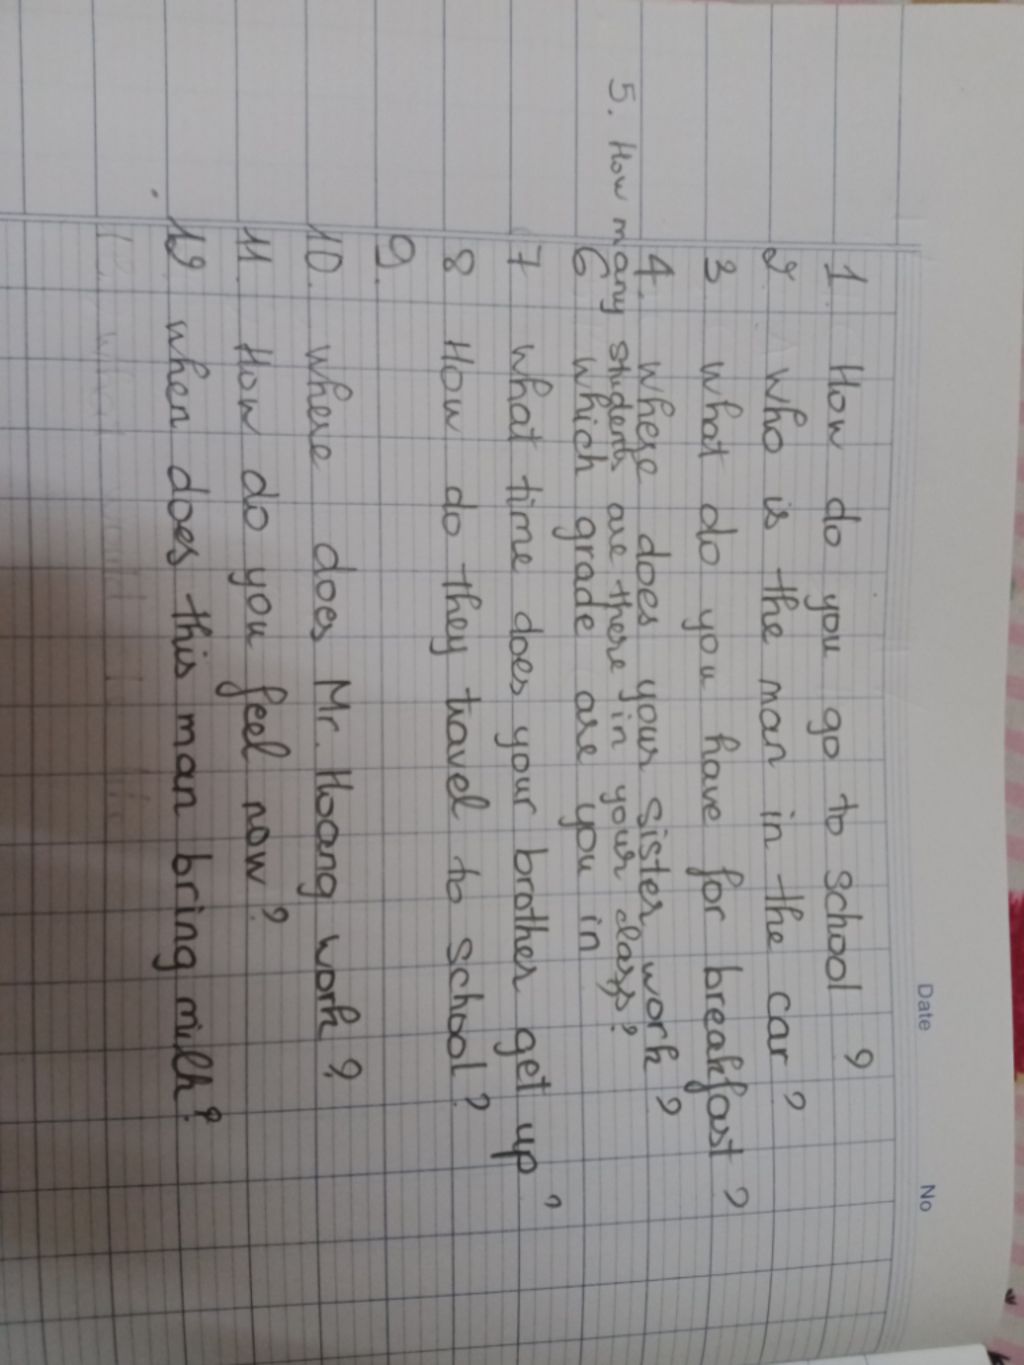 Date No
1. How do you go to school ?
2 who is the man in the car ?
3 what do you have for breakfast ?
4. where does your sister work ?
5. How many students are there in your class ?
6 which grade are you in
7 what time does your brother get up ?
8 How do they travel to school ?
9.
10. where does Mr. Hoang work ?
11. How do you feel now ?
12 when does this man bring milk ?